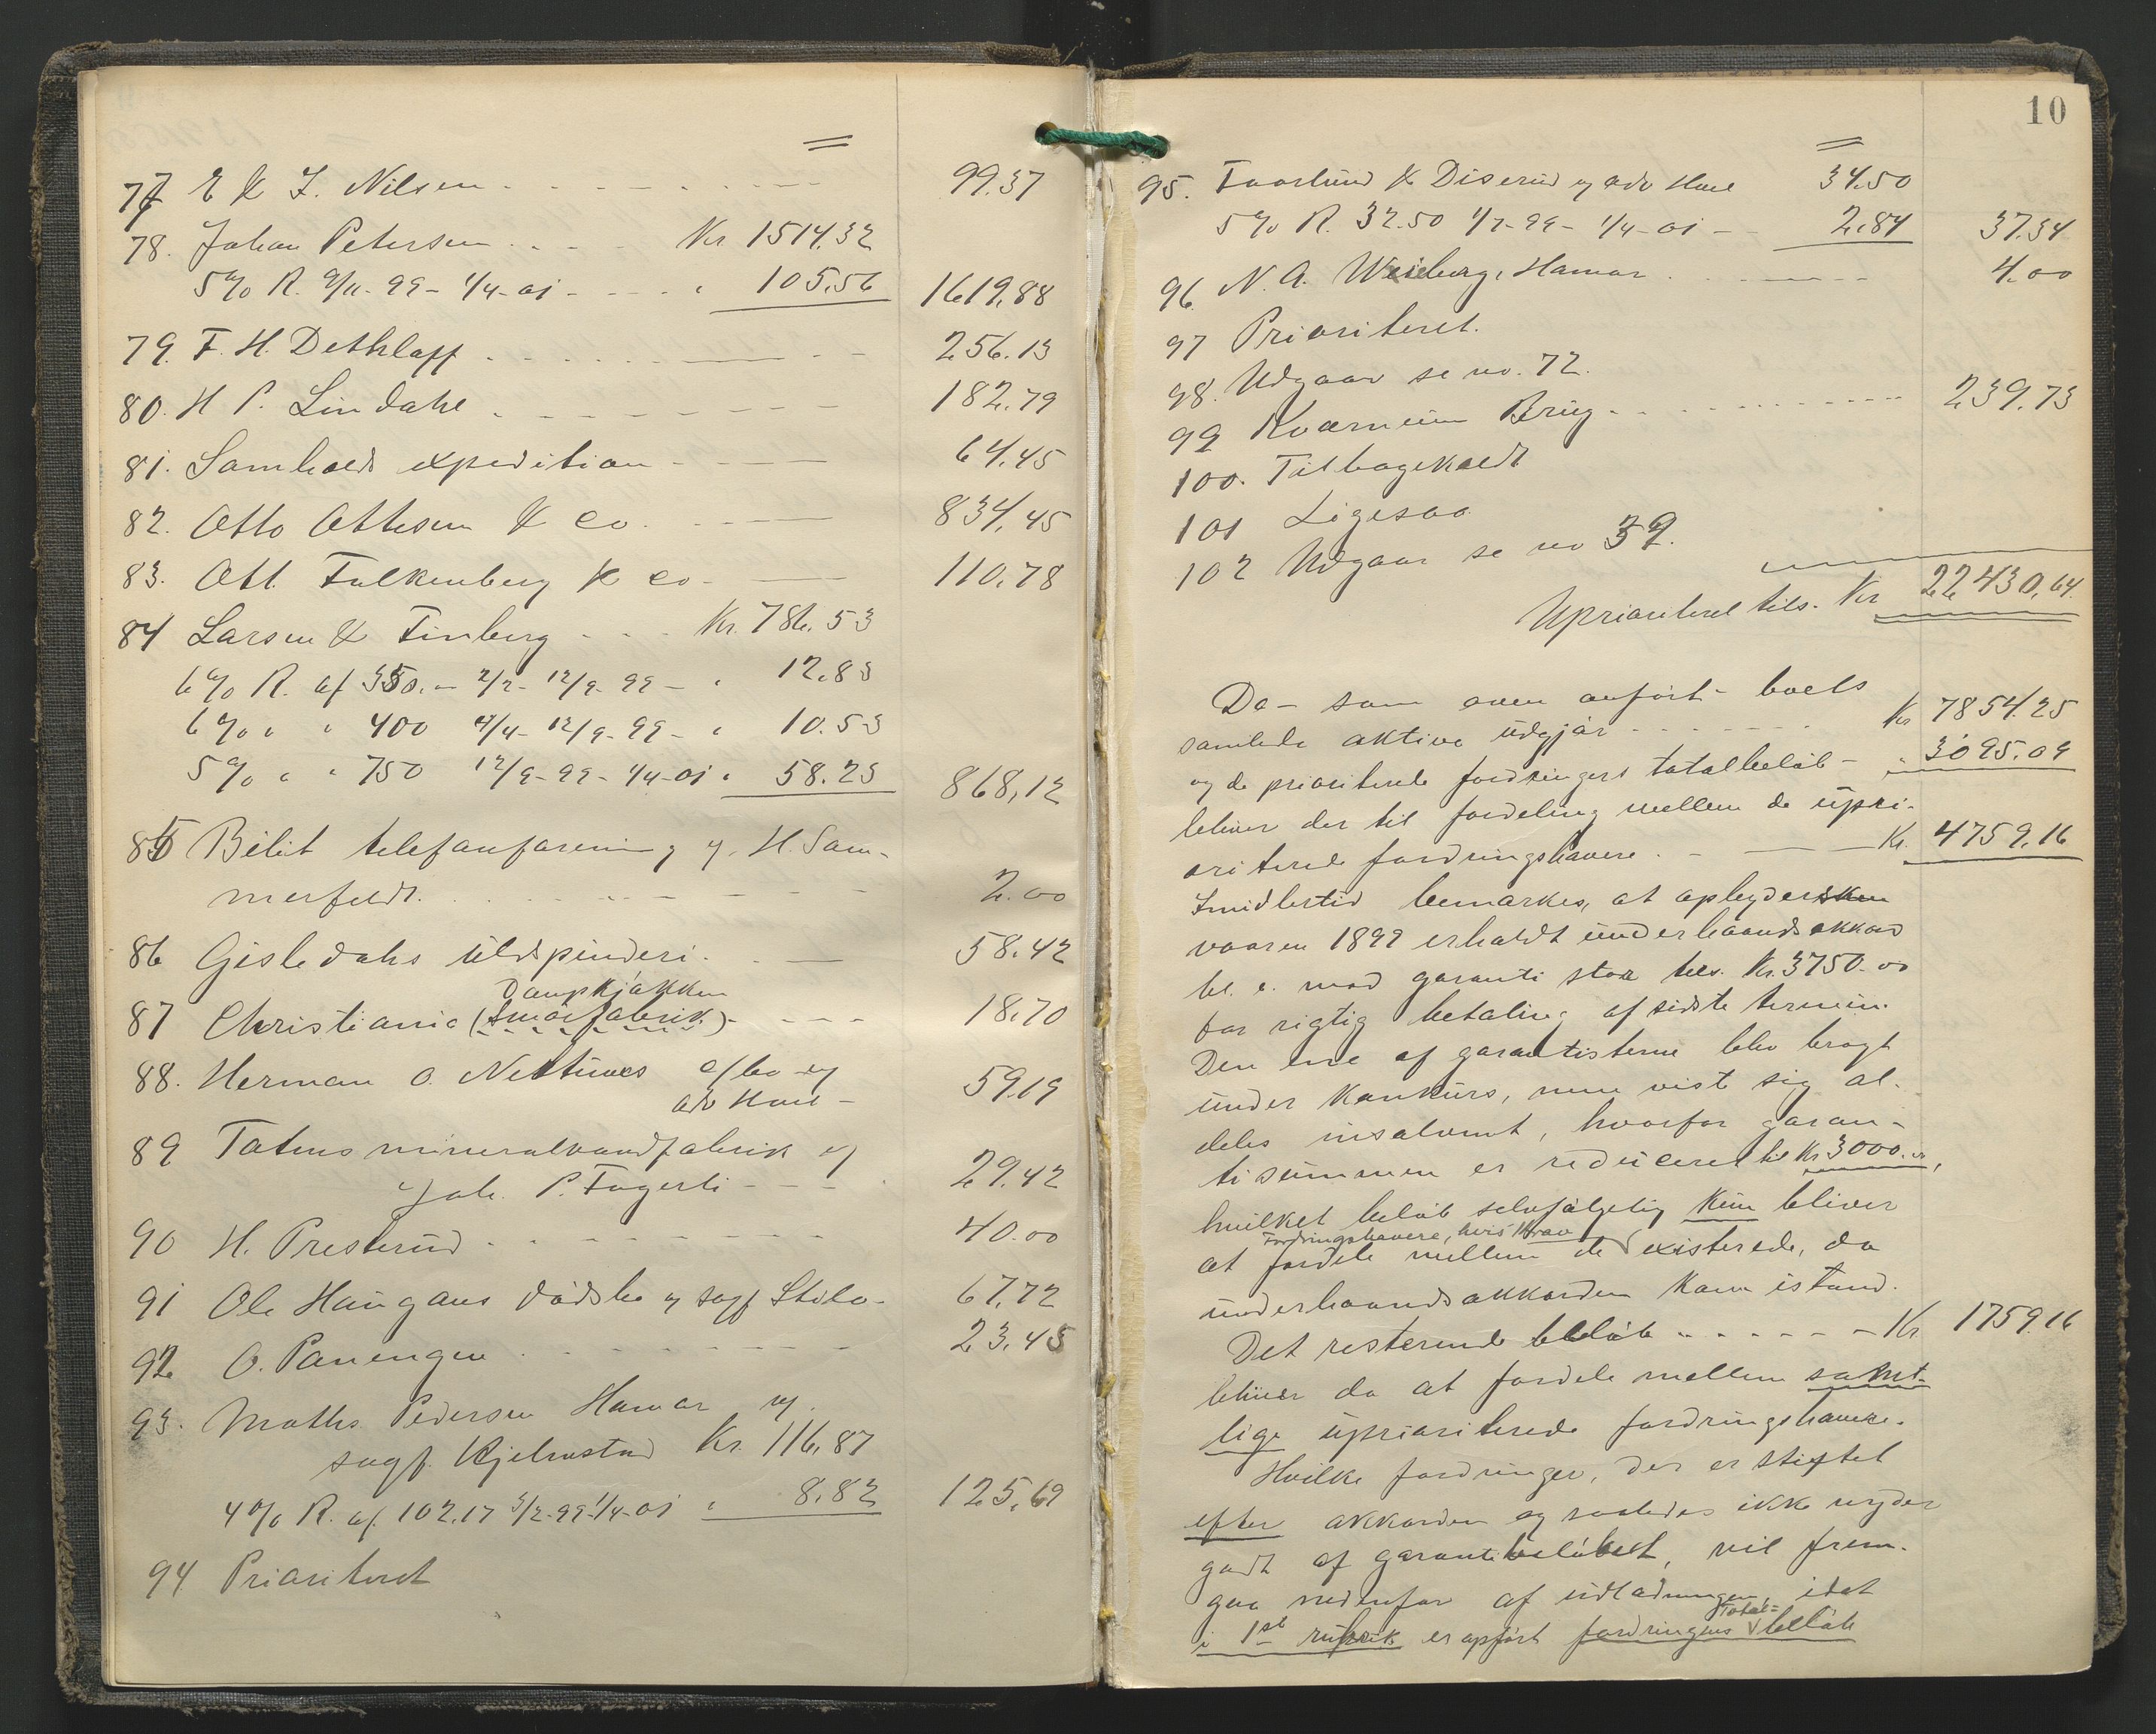 77 E & F. Nilsen 99.37
78. Johan Petersen Kr 1514.32
5% R. 9/11-99-1/4-01 " 105.56 1619.88
79. F. H. Dethloff 256.13
80. H P. Lindahl 182.79
81. Samholds expedition 64.45
82. Otto Ottesen & co. 834.45
83. Ott. Falkenberg & co 110.78
84 Larsen & Finberg Kr. 786.53
6% R. af 350.- 2/2-12/9-99 - " 12.83
6% " " 400 4/4-12/9-99 - " 10.53
5% " " 750 12/9-99-1/4-01 " 58.23 868.12
85 Bilit telefonforening v. H. Som-
merfeldt. 2.00
86 Gisledahs uldspinderi. 58.42
Dampkjøkken
87 Christiania (Smørfabrik) 18.70
88. Herman O. Nettums efbo v/
adv Huse 59.19
89 Totens mineralvandfabrik v/
Joh. P. Fagerli 29.42
90 H. Presterud 40.00
91 Ole Haugans dødsbo v sagf Stolo- 67.72
92 O. Panengen 23.43
93. Maths. Pedersen Hamar v.
sagf. Kjelmstad Kr. 116.87
4% R. af. 102.17 3/2-99-1/4-01 " 8.82 125.69
94 Prioriteret
10
95. Faarlund & Diserud v adv Huse 34.50
5% R. 32.50 1/7-99-1/4-01 2.84 37.34
96. N. A. Weiberg, Hamar 4.00
97 Prioriteret.
98. Udgaar se no. 72.
99 Kværnum Brug 239.73
100. Tilbagekaldt
101 Ligesaa
102 Udgaar se no 39.
Uprioriteret tils. Kr 22430.64
Da - som oven anført - boets
samlede aktiva udgjør Kr 7854.25
og de prioriterede fordringers totalbeløb - " 3095.09
bliver der til fordeling mellem de upri-
oriterede fordringshavere. Kr. 4759.16
Imidlertid bemærkes, at opbyderen
vaaren 1899 erholdt underhaandsakkord
bl. a. mod garanti stor tils. Kr. 3750.00
for rigtig betaling af sidste termin.
Den ene af garantisterne blev bragt
under konkurs, men viste sig al-
deles insolvent, hvorfor garan-
tisummen er reduceret til Kr 3000.00,
hvilket beløb selvfølgelig kun bliver
Fordringshavere, hvis krav
at fordele mellem de existerede, da
underhaandsakkorden kom istand.
Det resterende beløb - Kr 1759.16
bliver da at fordele mellem samt-
lige uprioriterede fordringshavere.
Hvilke fordringer, der er stiftet
efter akkorden og saaledes ikke nyder
godt af garantibeløbet, vil frem-
gaa nedenfor af udlodningen, idet
Total=
i 1ste rubrik er opført fordringens beløb